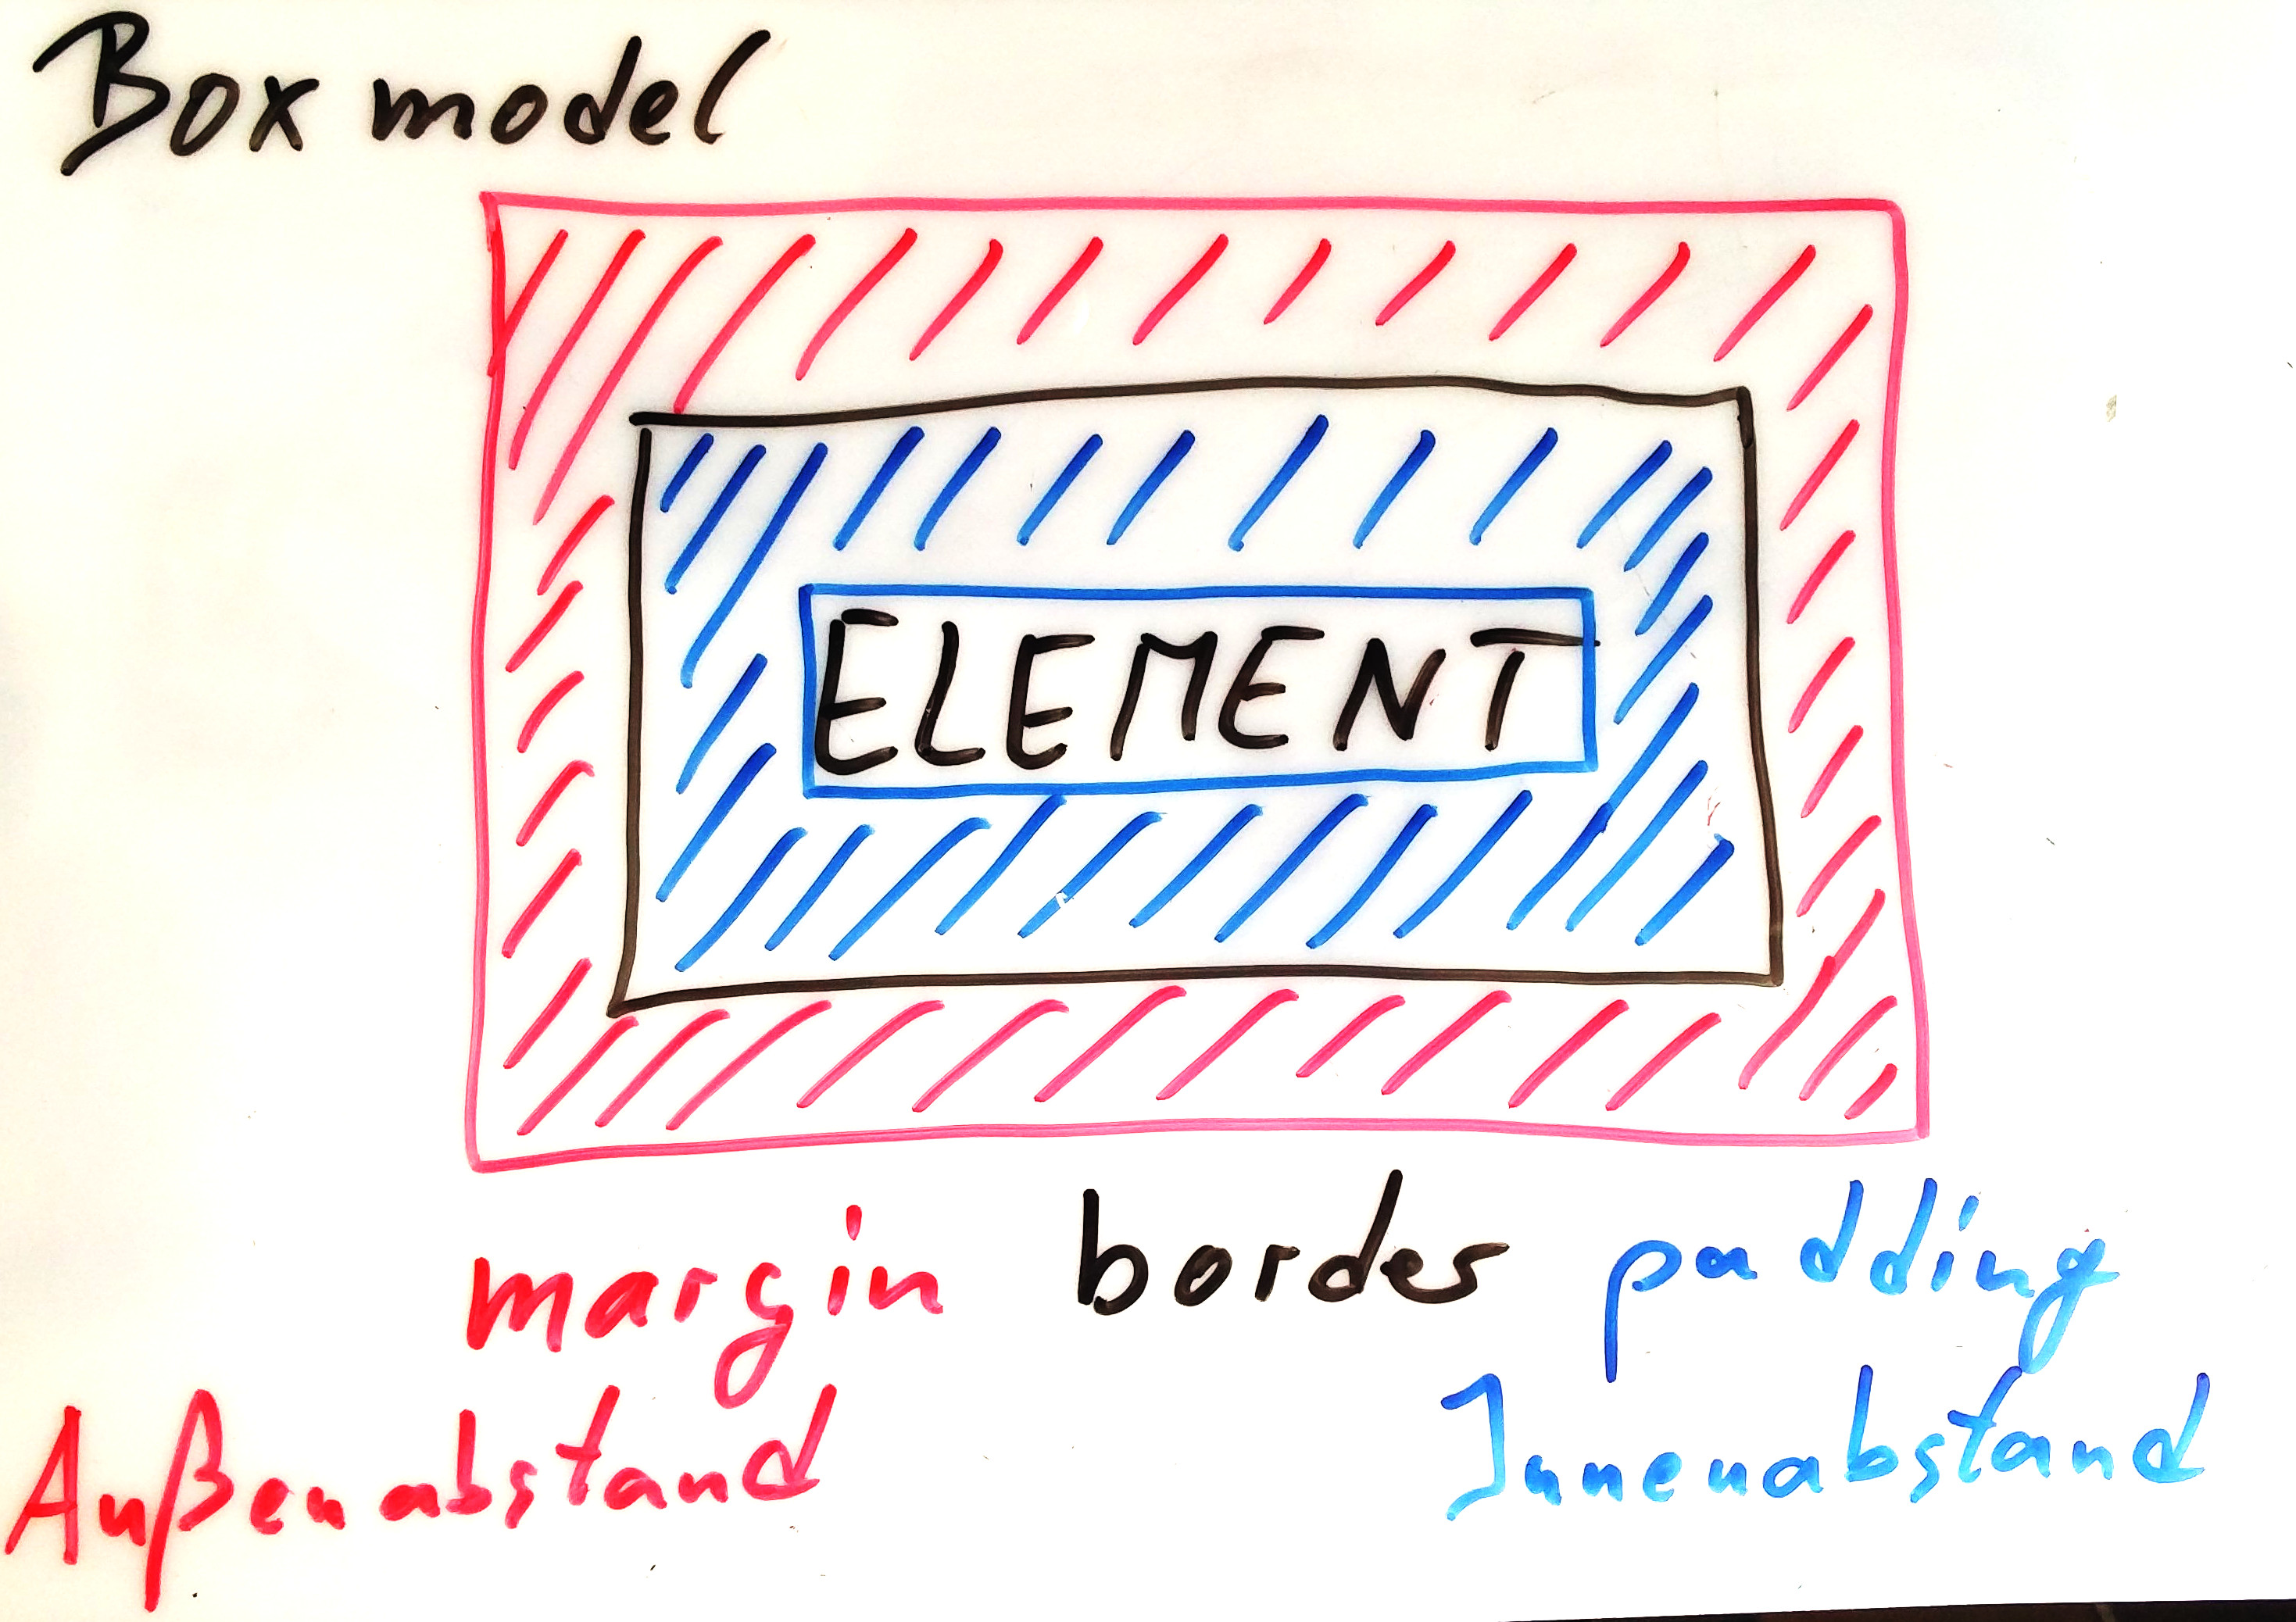 Box model
ELEMENT
margin border padding
Außenabstand Innenabstand